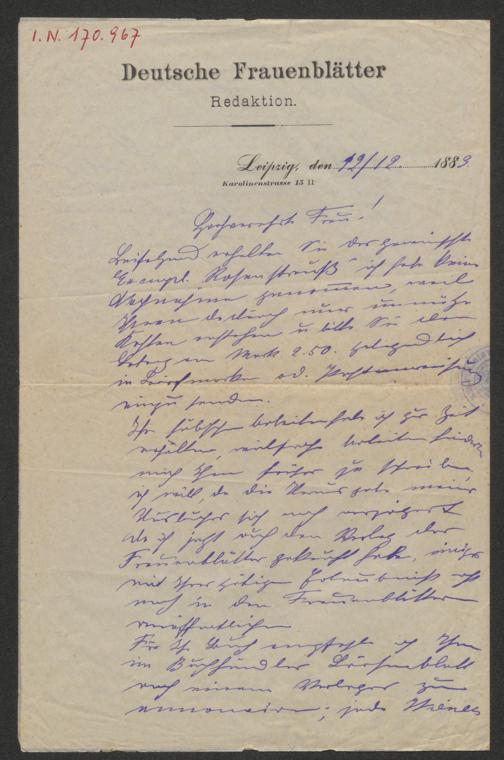 I.N. 170.967
Deutsche Frauenblätter
Redaktion.
Leipzig, den 12/12. 1883.
Karolinenstrasse 15 II
Hochverehrte Frau!
Beifolgend erhalten Sie das gewünschte
Exempl. "Rosenstrauß" ich habe keine
Nachnahme genommen, weil
Ihnen dadurch nur unnütze
Kosten entstehen u. bitte Sie den
Betrag von Mark 2.50. gelegentlich
in Briefmarken od. Postanweisung
einzusenden.
Ihr hübschen Arbeiten habe ich zur Zeit
erhalten, vielfache Arbeiten hinderten
mich Ihnen früher zu schreiben
ich will, da die Herausgabe meines
Buches sich noch verzögert
da ich jetzt auch den Verlag der
Frauenblätter gekauft habe, einiges
mit Ihrer gütigen Erlaubniß
noch in den Frauenblättern
veröffentlichen
Für Ihr Buch empfehle ich Ihnen
im Buchhändler Börsenblatt
nach einem Verleger zu
annonciren; jede